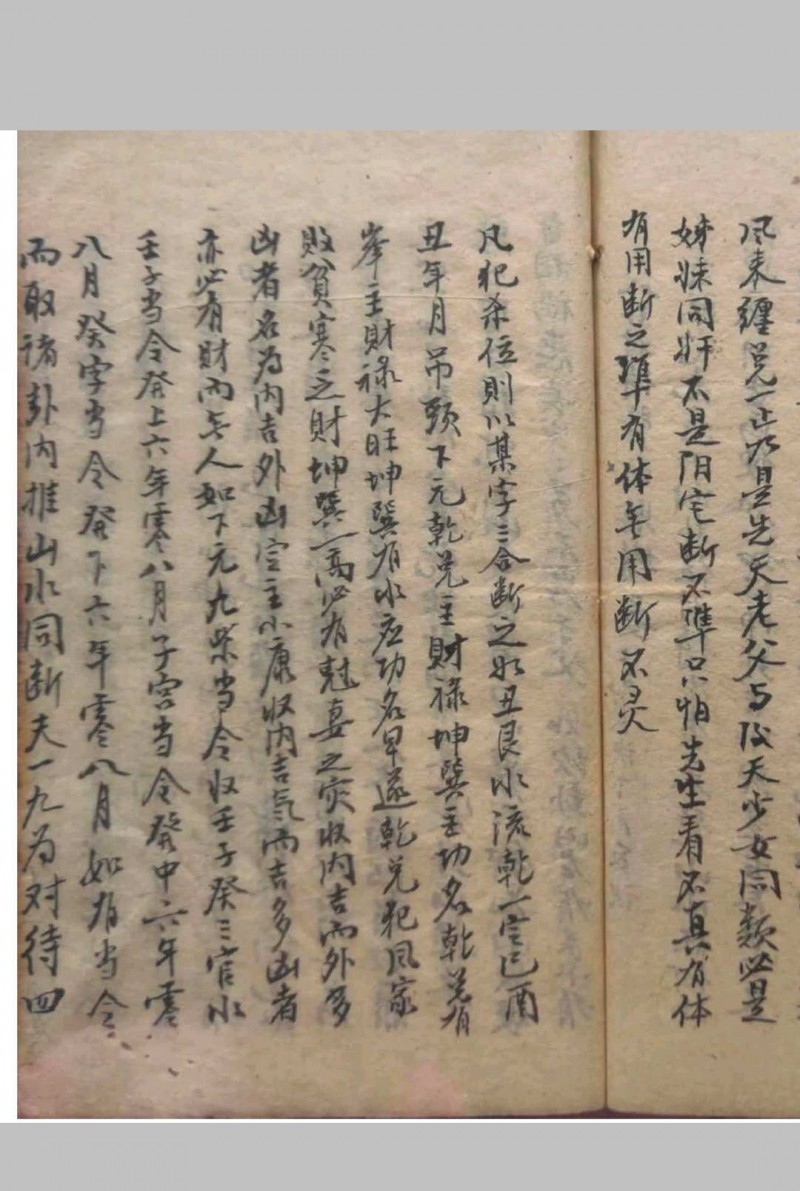 风来缠兑一正必是先天老父与后天少女同类必是
姊妹同奸不是阳宅断不準只怕先生看不真有体
有用断之準有体無用断不灵
凡犯杀位則以某字三合断之如丑艮水流乾一定巳酉
丑年月吊頭下元乾兑主財禄坤巽主功名乾兑有
峯主財禄大旺坤巽有水应功名早遂乾兑犯风家
敗貧寒之財坤巽一高必有尅妻之灾收内吉而外多
凶者名为内吉外凶定主小康收内吉気而吉多凶者
亦必有財而無人如下元九紫当令收壬子癸三官水
壬子当令發上六年零八月子宫当令發中六年零
八月癸字当令發下六年零八月如有当令
而取诸卦内推山水同断夫一九为对待四